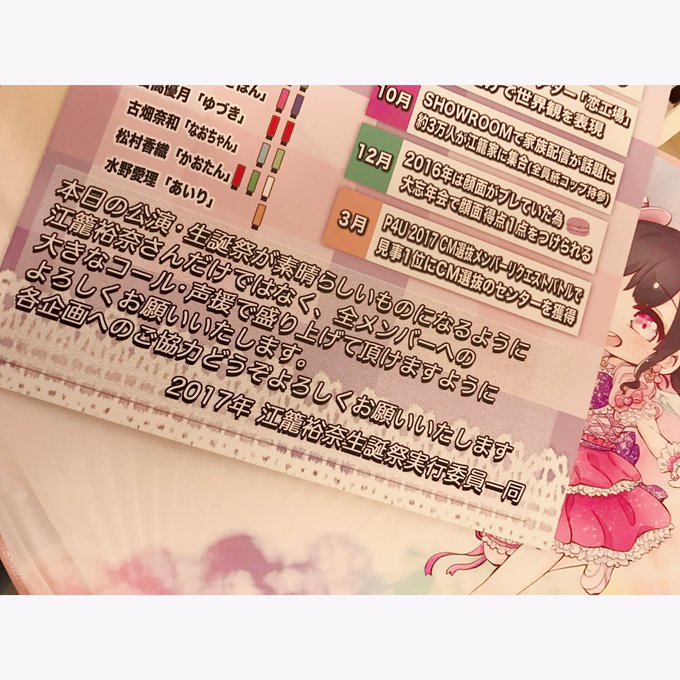 優月「ゆづき」
古畑奈和「なおちゃん」
松村香織「かおたん」
水野愛理「あいり」
「恋工場」
で世界観を表現
10月
SHOWROOMで家族配信が話題に
約3万人が江籠家に集合(全員紙コップ持参)
12月
2016年は顔面がブレていた為
大忘年会で顔面得点1点をつけられる
3月
P4U 2017 CM選抜メンバーリクエストバトルで
見事1位にCM選抜のセンターを獲得
本日の公演・生誕祭が素晴らしいものになるように
江籠裕奈さんだけではなく、全メンバーへの
大きなコール・声援で盛り上げて頂けますように
よろしくお願いいたします。
各企画へのご協力どうぞよろしくお願いいたします
2017年 江籠裕奈生誕祭実行委員一同